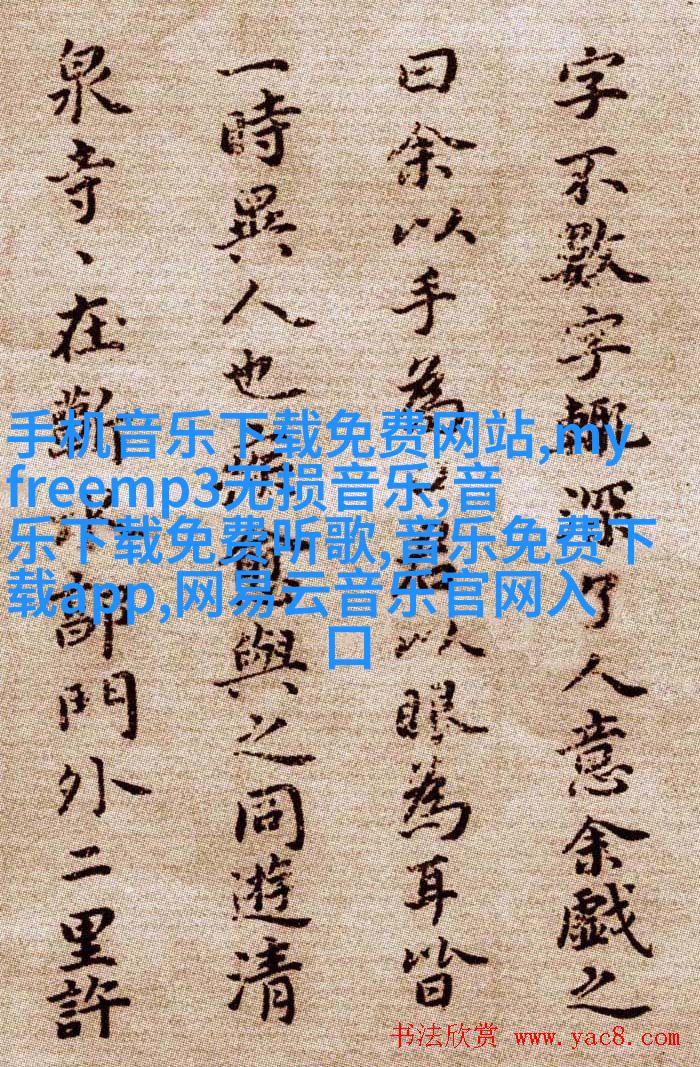 字不數字輒深了人意余戲之
曰余以手為以眼為耳皆
一時異人也與之同遊清
泉寺、在蘄水郭門外二里許
手机音乐下载免费网站,my
freemp3无损音乐,音
乐下载免费听歌,音乐免费下
载app,网易云音乐官网入
口
书法欣赏 www.yac8.com